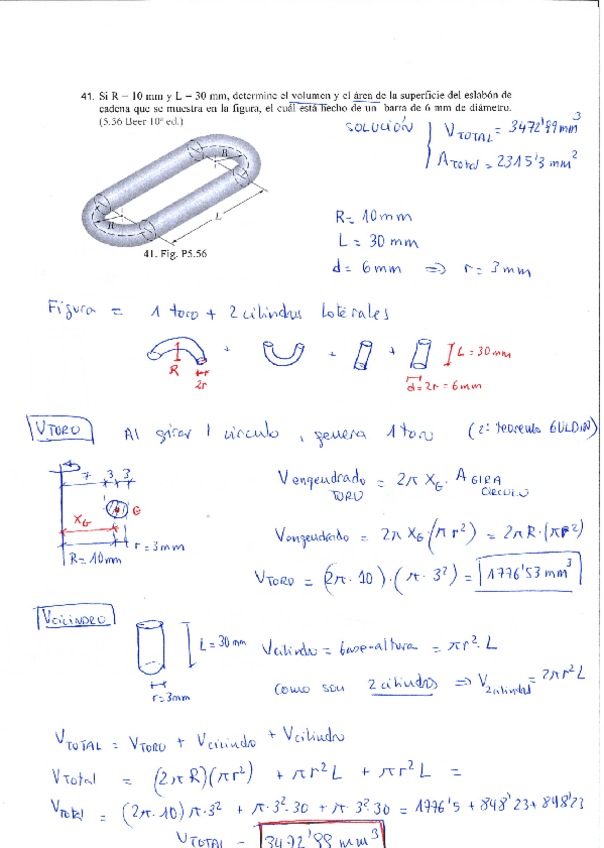 41. Si R = 10 mm y L = 30 mm, determine el volumen y el área de la superficie del eslabón de
cadena que se muestra en la figura, el cuál está hecho de un barra de 6 mm de diámetro.
(5.56 Beer 10ª ed.)
SOLUCIÓN
V TOTAL = 3472'99 mm³
A Total = 2315'3 mm²
R
R
L
41. Fig. P5.56
R = 10mm
L = 30 mm
d = 6mm ⇒ r = 3mm
Figura = 1 toro + 2 cilindros laterales
+ + +
R
2r
L = 30mm
d = 2r = 6mm
V TORO
Al girar 1 circulo, genera 1 toro (2º teorema GULDIN)
7 3 3
G
X G
R = 10mm
r = 3mm
V engendrado TORO = 2π X G · A GIRA CIRCULO
V engendrado = 2π X G · (π r²) = 2π R · (π r²)
V TORO = (2π · 10) · (π · 3²) = 1776'53 mm³
V CILINDRO
L = 30 mm
r = 3mm
V cilindro = base · altura = π r² · L
como son 2 cilindros ⇒ V 2 cilindros = 2π r² L
V TOTAL = V TORO + V cilindro + V cilindro
V Total = (2π R)(π r²) + π r² L + π r² L =
V Total = (2π · 10) π · 3² + π · 3² · 30 + π · 3² · 30 = 1776'5 + 848'23 + 848'23
V TOTAL = 3472'99 mm³